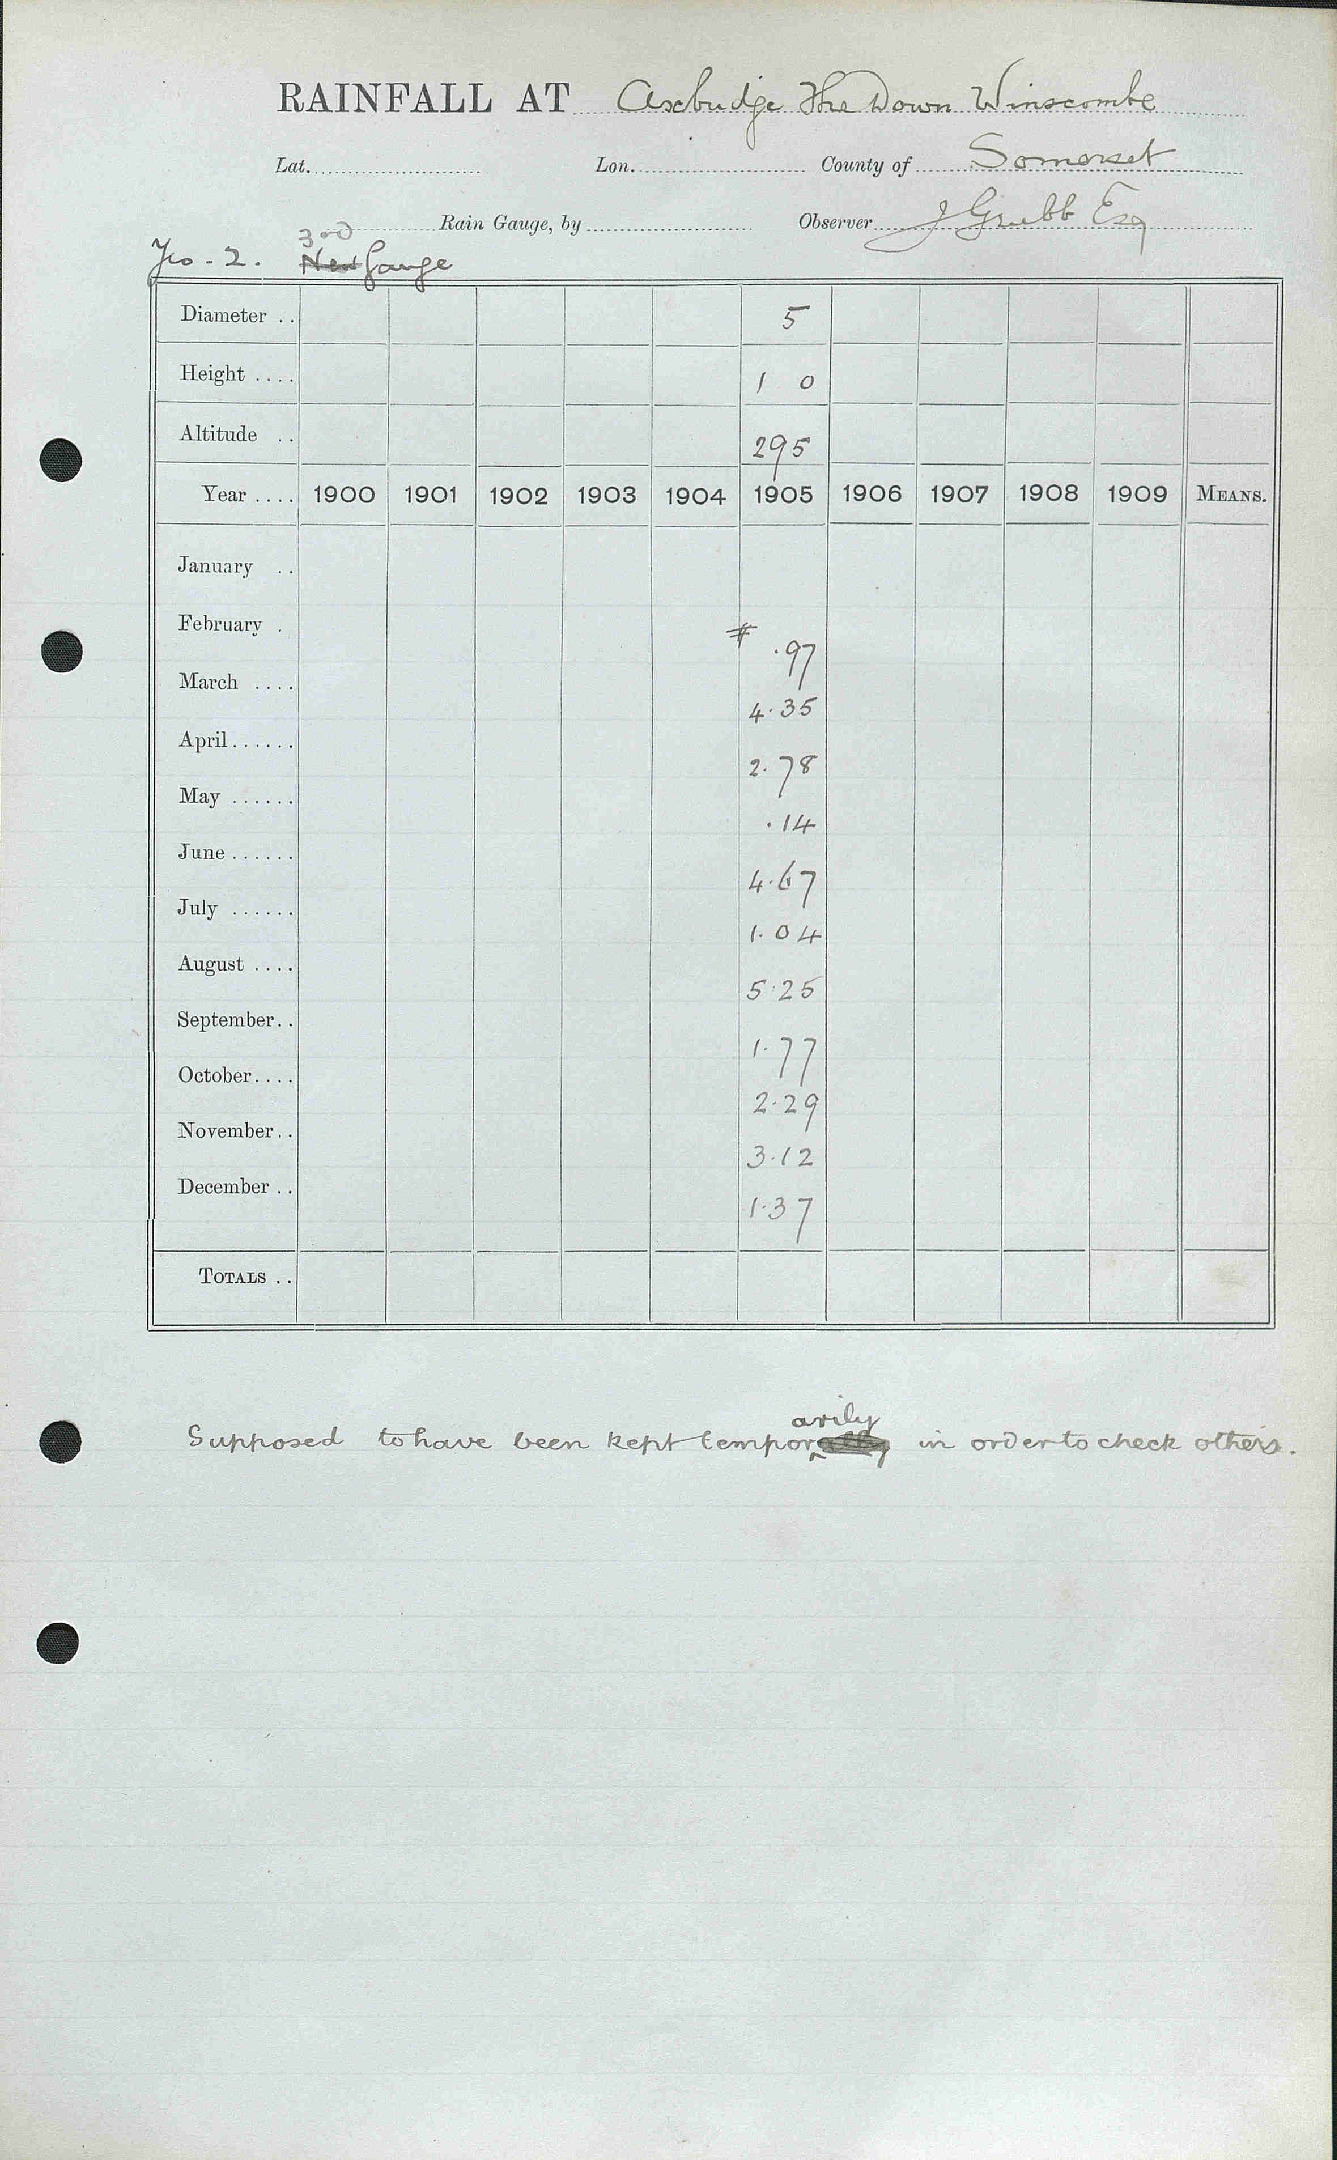 RAINFALL AT Axbridge The Down Winscombe
Lat. Lon. County of Somerset
Rain Gauge, by Observer J Grubb Esq
3rd
Yeo - 2. New Gauge
Diameter . . 5
Height . . . . 1 0
Altitude . . 295
Year . . . . 1900 1901 1902 1903 1904 1905 1906 1907 1908 1909 MEANS.
January . .
February . # .97
March . . . . 4.35
April . . . . . . 2.78
May . . . . . . .14
June . . . . . . 4.67
July . . . . . . 1.04
August . . . . 5.25
September . . 1.77
October . . . . 2.29
November . . 3.12
December . . 1.37
TOTALS . .
arily
Supposed to have been kept tempor in order to check others.